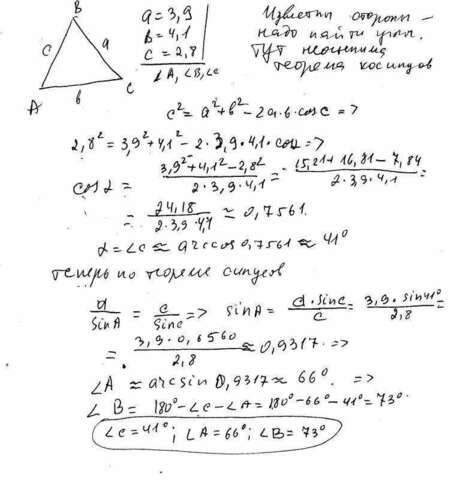 B
a = 3,9
b = 4,1
c = 2,8
∠A, ∠B, ∠c
c
a
A
b
C
Известны стороны –
надо найти углы.
Тут
теорема косинусов
c² = a² + b² - 2a·b·cosc =>
2,8² = 3,9² + 4,1² - 2·3,9·4,1·cosα =>
cosα = (3,9² + 4,1² - 2,8²) / (2·3,9·4,1) = (15,21 + 16,81 - 7,84) / (2·3,9·4,1) =
= 24,18 / (2·3,9·4,1) ≈ 0,7561.
α = ∠c ≈ arccos 0,7561 ≈ 41°
теперь по теореме синусов
a / sinA = c / sinc => sinA = a·sinc / c = 3,9·sin41° / 2,8 =
= 3,9·0,6560 / 2,8 ≈ 0,9317 =>
∠A ≈ arcsin 0,9317 ≈ 66° =>
∠B = 180° - ∠c - ∠A = 180° - 66° - 41° = 73°
∠c = 41°; ∠A = 66°; ∠B = 73°